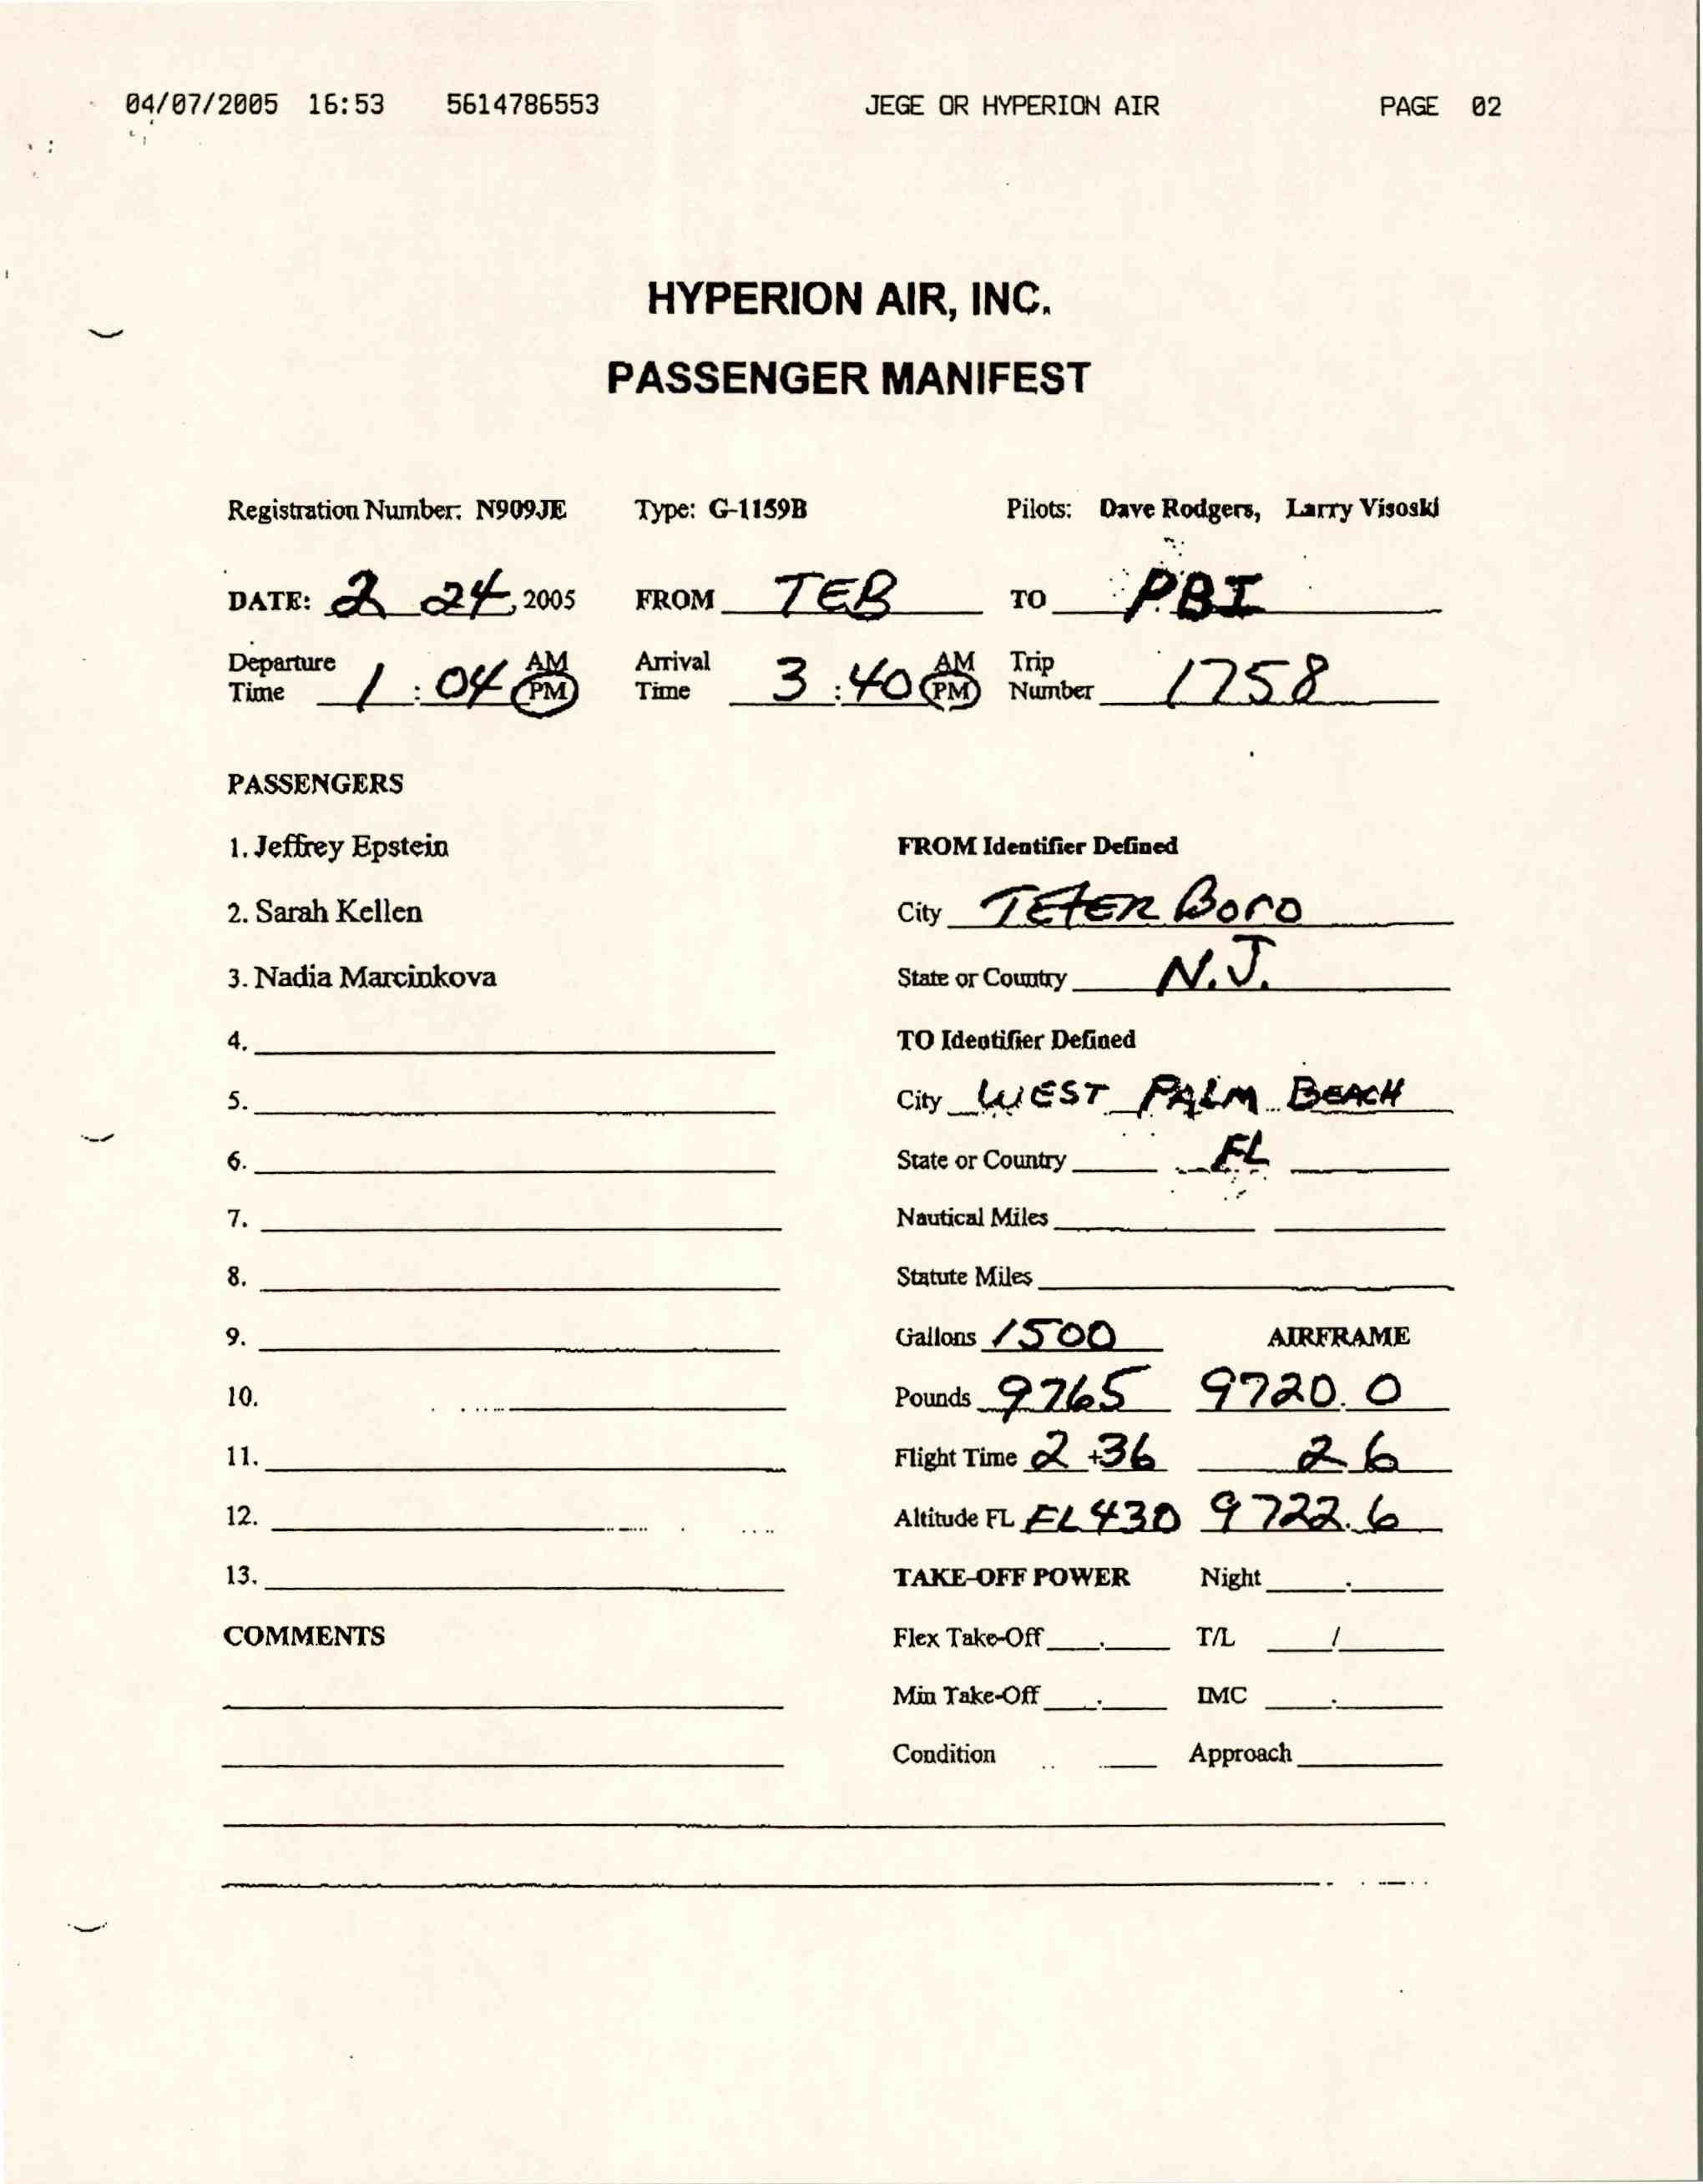 04/07/2005 16:53 5614786553 JEGE OR HYPERION AIR PAGE 02
HYPERION AIR, INC.
PASSENGER MANIFEST
Registration Number: N909JE Type: G-1159B Pilots: Dave Rodgers, Larry Visoski
DATE: 2 24, 2005 FROM TEB TO PBI
Departure Time 1:04 AM PM Arrival Time 3:40 AM PM Trip Number 1758
PASSENGERS
1. Jeffrey Epstein FROM Identifier Defined
2. Sarah Kellen City TETERBORO
3. Nadia Marcinkova State or Country N.J.
4. TO Identifier Defined
5. City WEST PALM BEACH
6. State or Country FL
7. Nautical Miles
8. Statute Miles
9. Gallons 1500 AIRFRAME
10. Pounds 9765 9720.0
11. Flight Time 2+36 2.6
12. Altitude FL FL430 9722.6
13. TAKE-OFF POWER Night .
COMMENTS Flex Take-Off . T/L /
Min Take-Off . IMC .
Condition Approach